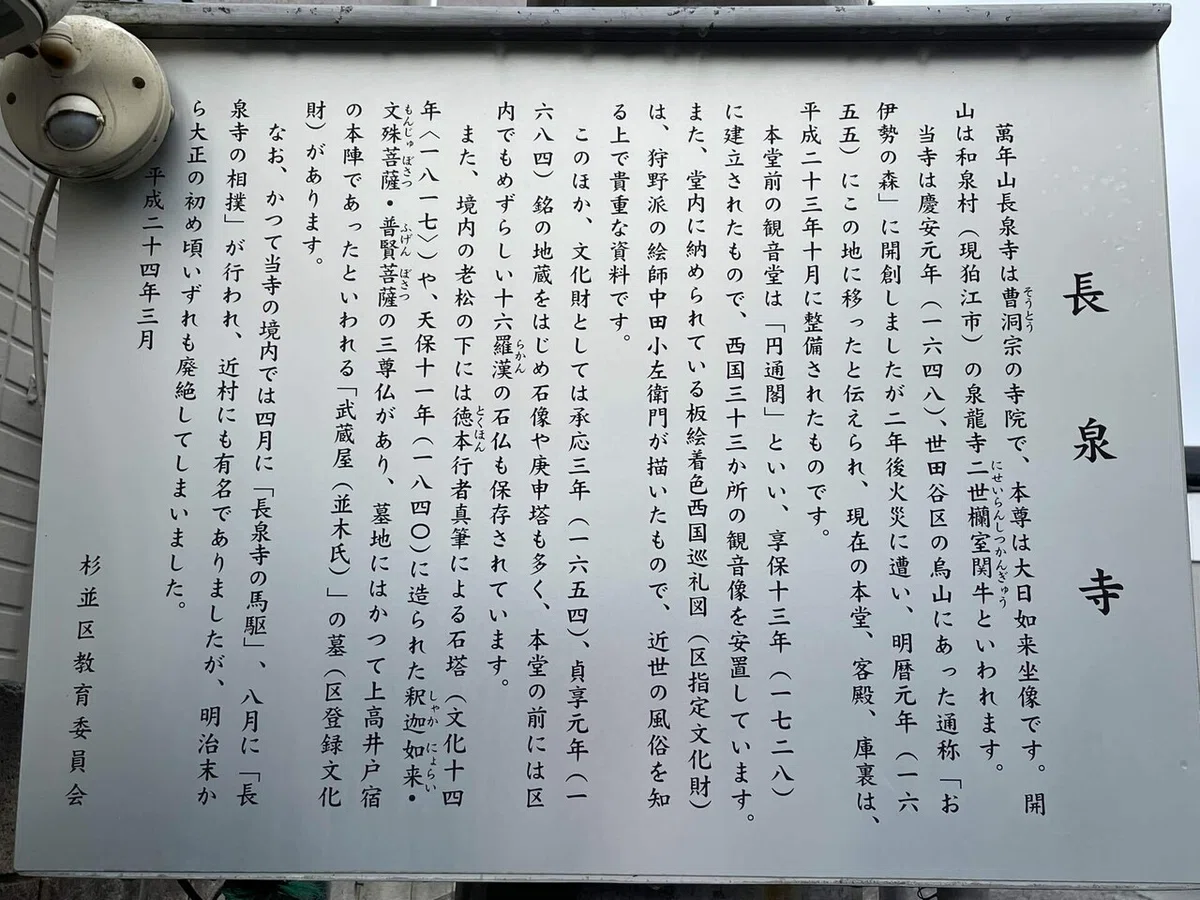 長泉寺
そうとう
萬年山長泉寺は曹洞宗の寺院で、本尊は大日如来坐像です。開
にせいらんしつかんぎゅう
山は和泉村（現狛江市）の泉龍寺二世欄室関牛といわれます。
当寺は慶安元年（一六四八）、世田谷区の烏山にあった通称「お
伊勢の森」に開創しましたが二年後火災に遭い、明暦元年（一六
五五）にこの地に移ったと伝えられ、現在の本堂、客殿、庫裏は、
平成二十三年十月に整備されたものです。
本堂前の観音堂は「円通閣」といい、享保十三年（一七二八）
に建立されたもので、西国三十三か所の観音像を安置しています。
また、堂内に納められている板絵着色西国巡礼図（区指定文化財）
は、狩野派の絵師中田小左衛門が描いたもので、近世の風俗を知
る上で貴重な資料です。
このほか、文化財としては承応三年（一六五四）、貞享元年（一
六八四）銘の地蔵をはじめ石像や庚申塔も多く、本堂の前には区
らかん
内でもめずらしい十六羅漢の石仏も保存されています。
とくほん
また、境内の老松の下には徳本行者真筆による石塔（文化十四
年〈一八一七〉）や、天保十一年（一八四〇）に造られた釈迦如来・
もんじゅ ぼさつ ふげん ぼさつ しゃか にょらい
文殊菩薩・普賢菩薩の三尊仏があり、墓地にはかつて上高井戸宿
の本陣であったといわれる「武蔵屋（並木氏）」の墓（区登録文化
財）があります。
なお、かつて当寺の境内では四月に「長泉寺の馬駆」、八月に「長
泉寺の相撲」が行われ、近村にも有名でありましたが、明治末か
ら大正の初め頃いずれも廃絶してしまいました。
平成二十四年三月
杉並区教育委員会